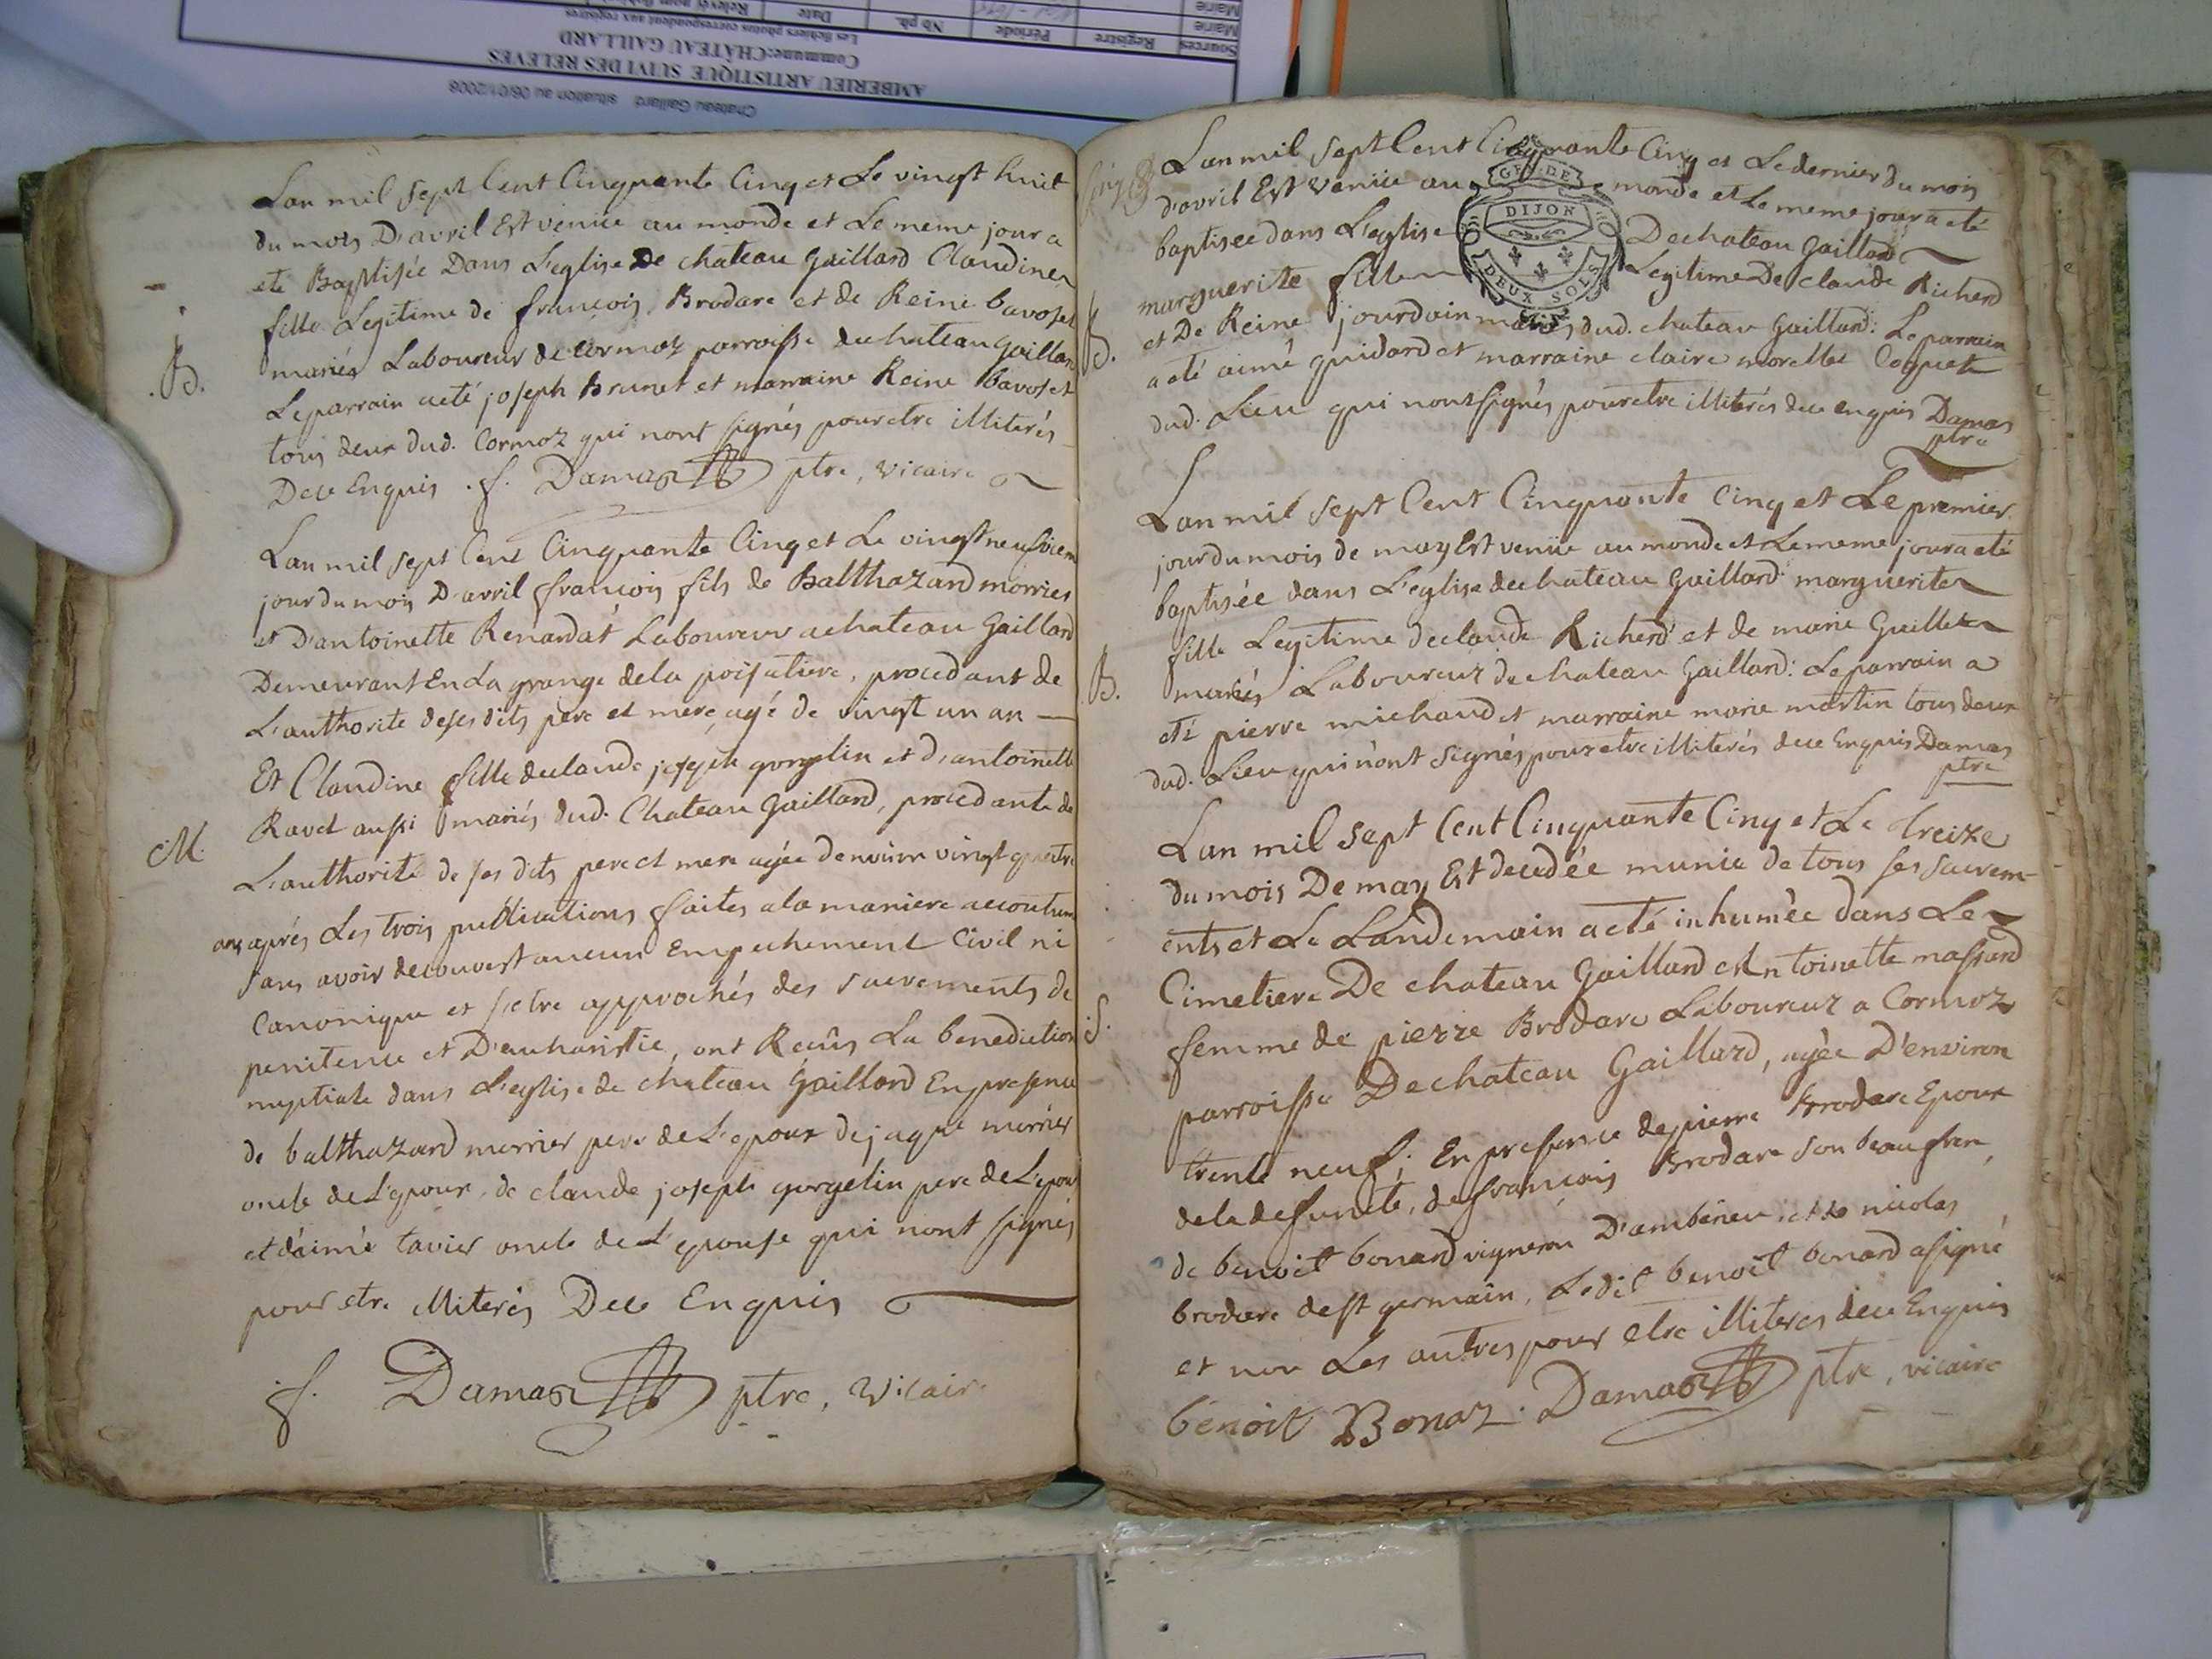 Chateau Gaillard situation au 06/01/2008
AMBERIEU ARTISTIQUE SUIVI DES RELEVES
Commune: CHÂTEAU GAILLARD
Les fichiers photos correspondent aux registres
Sources Registre Période Nb ph Date
Mairie
Mairie
Lan mil sept Cent Cinquante Cinq et Le vingt huit
du mois D'avril Est venüe au monde et Le meme jour a
eté Baptisée Dans L'eglise De chateau Gaillard Claudine
fille Legitime de françois Brodare et de Reine bavoset
mariés Laboureur de Cormoz parroisse de chateau Gaillard
.B.
Le parrain a eté joseph Brunet et marraine Reine bavoset
tous deux dud. Cormoz qui nont signés pour etre illiterés
De ce Enquis . f. Damas ptre, vicaire
Lan mil sept Cent Cinquante Cinq et Le vingt neufviem
jour du mois D'avril françois fils de Balthazard morrier
et D'antoinette Renardat Laboureur a chateau Gaillard
Demeurant En La grange de la poisatiere, procedant de
L'authorite de ses dits pere et mere, agé de vingt un an
Et Claudine fille de claude joseph gorgelin et d'antoinette
Ravet aussi mariés dud. Chateau Gaillard, procedante de
M.
L'authorité de ses dits pere et mere agée denviron vingt quatre
ans, aprés Les trois publications faites a la maniere accoutum
sans avoir decouvert aucun Empechement Civil ni
Canonique et s'etre approchés des sacrements de
penitence et D'eucharistie, ont Reçûs La benediction
nuptiale dans L'eglise de chateau Gaillard En presence
de balthazard morrier pere de L'epoux de jaque morrier
oncle de L'epoux, de claude joseph gorgelin pere de L'epous
et d'aimé tavier oncle de L'epouse qui nont signés
pour etre illiterés De ce Enquis
f. Damas ptre, vicaire
Lan mil sept Cent Cinquante Cinq et Le dernier du mois
d'avril Est venüe au monde et Le meme jour a eté
baptisée dans L'eglise De chateau Gaillard
marguerite fille Legitime De claude Richerd
et De Reine jourdain mariés dud. chateau Gaillard: Le parrain
B.
a eté aimé guidard et marraine claire morellet Coquet
dud. Lieu qui nont signés pour etre illiterés de ce enquis Damas
ptre
GE. DE
DIJON
DEUX SOLS
Lan mil sept Cent Cinquante Cinq et Le premier
jour du mois de may Est venüe au monde et Le meme jour a eté
baptisée dans L'eglise de chateau Gaillard marguerite
fille Legitime de claude Richerd et de marie Guillet
B.
mariés Laboureur de chateau Gaillard: Le parrain a
eté pierre michaud et marraine marie martin tous deux
dud. Lieu qui n'ont signés pour etre illiterés de ce Enquis Damas
ptre
Lan mil sept Cent Cinquante Cinq et Le treize
du mois De may Est decedée munie de tous ses sacrem-
ents et Le Landemain a eté inhumée dans Le
Cimetiere De chateau Gaillard Antoinette massard
S.
femme de pierre Brodare Laboureur a Cormoz
parroisse De chateau Gaillard, agée D'environ
trente neuf; En presence de pierre Brodare Epoux
de la defuncte, de françois Brodare son beau frere,
de benoit bonard vigneron D'amberieu et de nicolas
brodare de st germain, Ledit benoit bonard a signé
et non Les autres pour etre illiteres de ce Enquis
benoit Bonaz. Damas ptre, vicaire